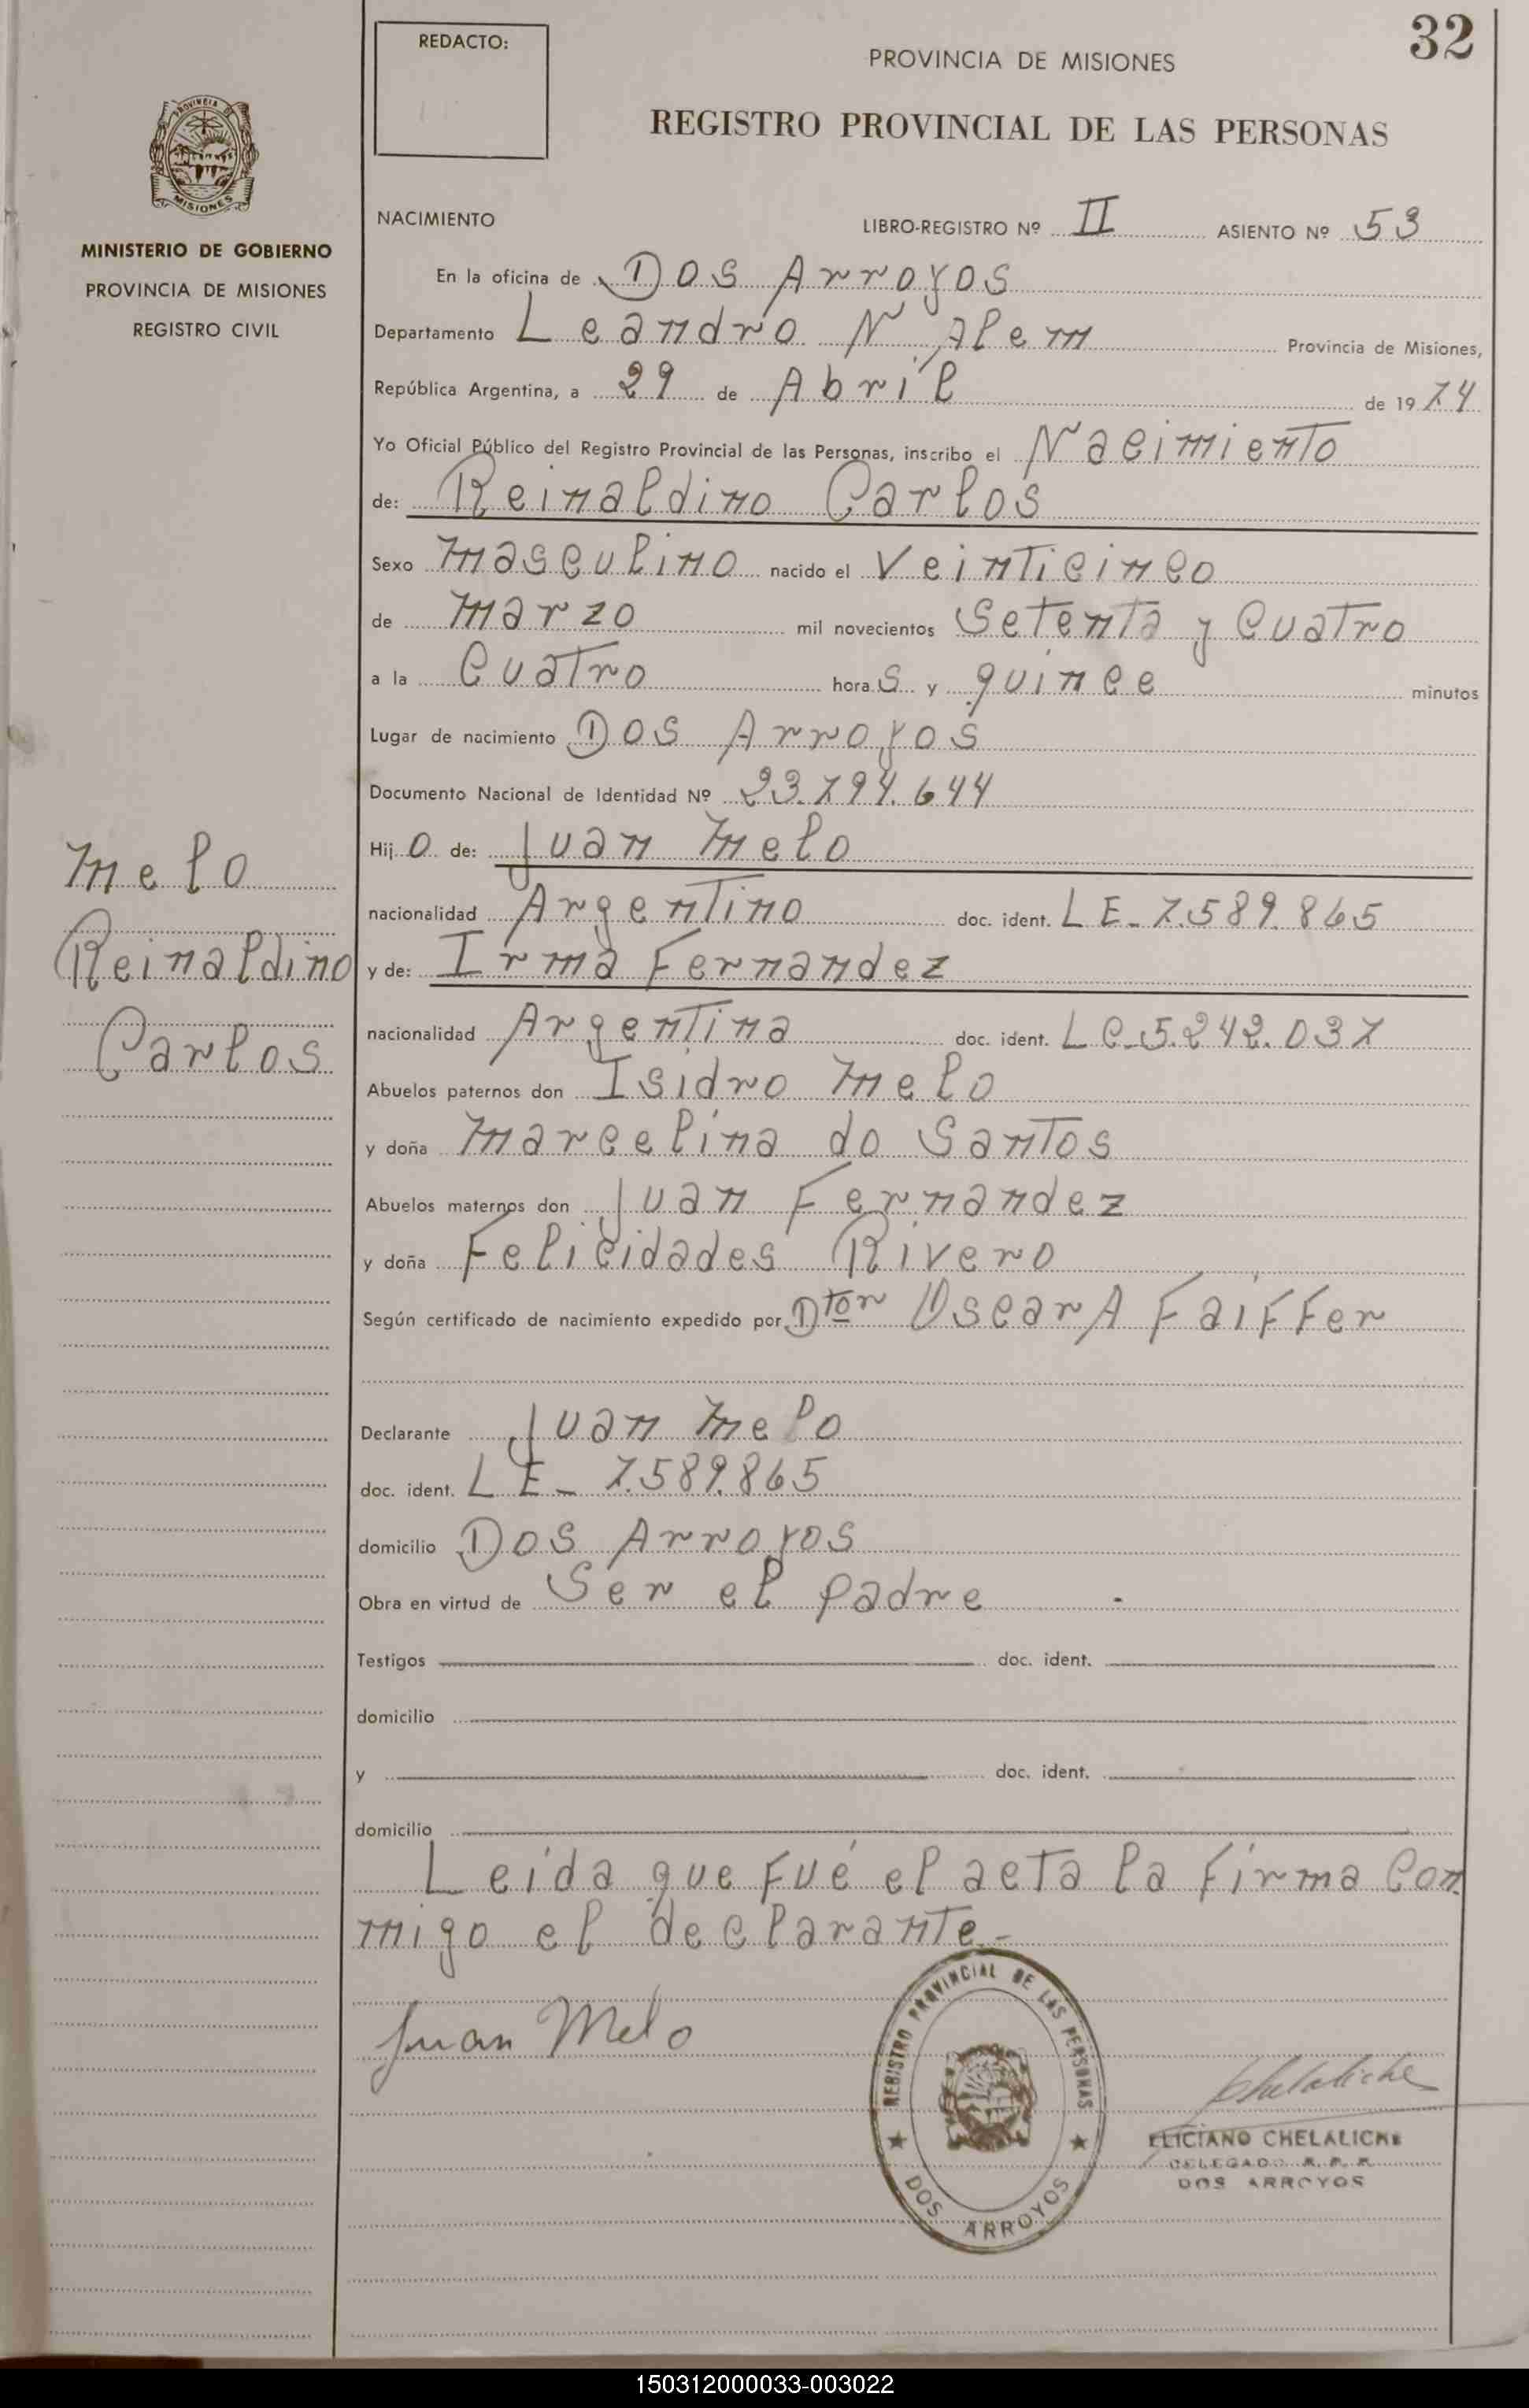 32
REDACTO:
PROVINCIA DE MISIONES
REGISTRO PROVINCIAL DE LAS PERSONAS
PROVINCIA
MISIONES
MINISTERIO DE GOBIERNO
PROVINCIA DE MISIONES
REGISTRO CIVIL
NACIMIENTO LIBRO-REGISTRO Nº II ASIENTO Nº 53
En la oficina de Dos Arroyos
Departamento Leandro N Alem Provincia de Misiones,
República Argentina, a 29 de Abril de 1974
Yo Oficial Público del Registro Provincial de las Personas, inscribo el Nacimiento
de: Reinaldino Carlos
Sexo masculino nacido el Veinticinco
de marzo mil novecientos Setenta y Cuatro
a la Cuatro horas y quince minutos
Lugar de nacimiento Dos Arroyos
Documento Nacional de Identidad Nº 23.794.644
Hijo de: Juan Melo
nacionalidad Argentino doc. ident. LE-7.589.865
y de: Irma Fernandez
nacionalidad Argentina doc. ident. LC-5.242.037
Abuelos paternos don Isidro Melo
y doña Marcelina do Santos
Abuelos maternos don Juan Fernandez
y doña Felicidades Rivero
Según certificado de nacimiento expedido por Dtor Oscar A Faiffer
Declarante Juan Melo
doc. ident. LE-7.589.865
domicilio Dos Arroyos
Obra en virtud de Ser el padre -
Testigos doc. ident.
domicilio
y doc. ident.
domicilio
Leída que fué el acta la firma con
migo el declarante.-
Melo
Reinaldino
Carlos
Juan Melo
REGISTRO PROVINCIAL DE LAS PERSONAS
DOS ARROYOS
Chelaliche
ELICIANO CHELALICHE
DELEGADO R. P. P.
DOS ARROYOS
150312000033-003022